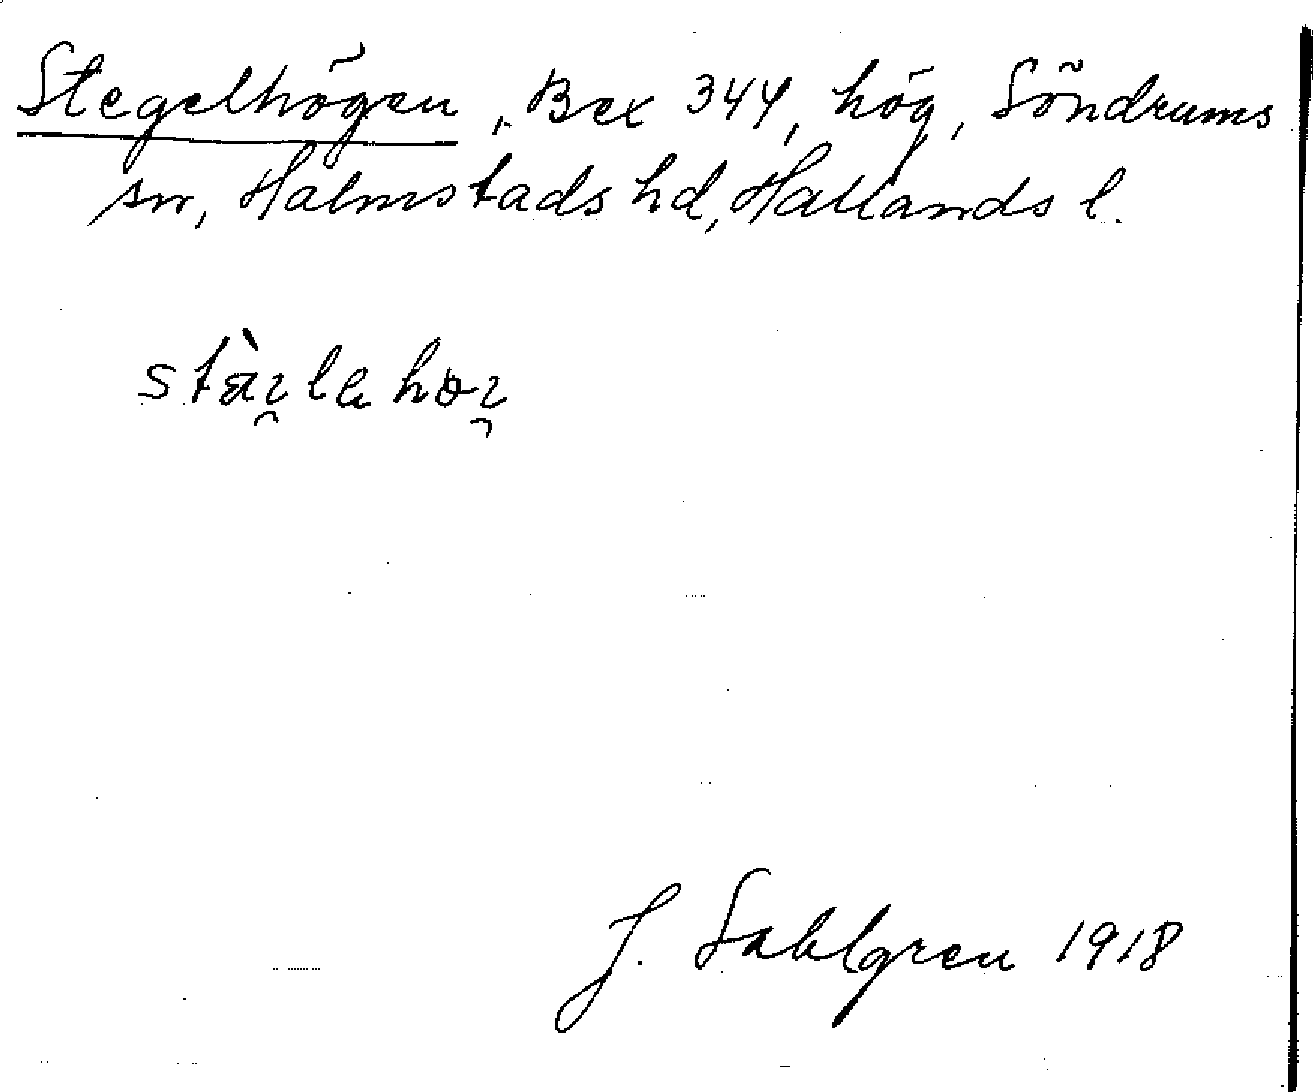 Stegelhögen, Bex 344, hög, Söndrums
sn, Halmstads hd, Hallands l.
J. Sahlgren 1918